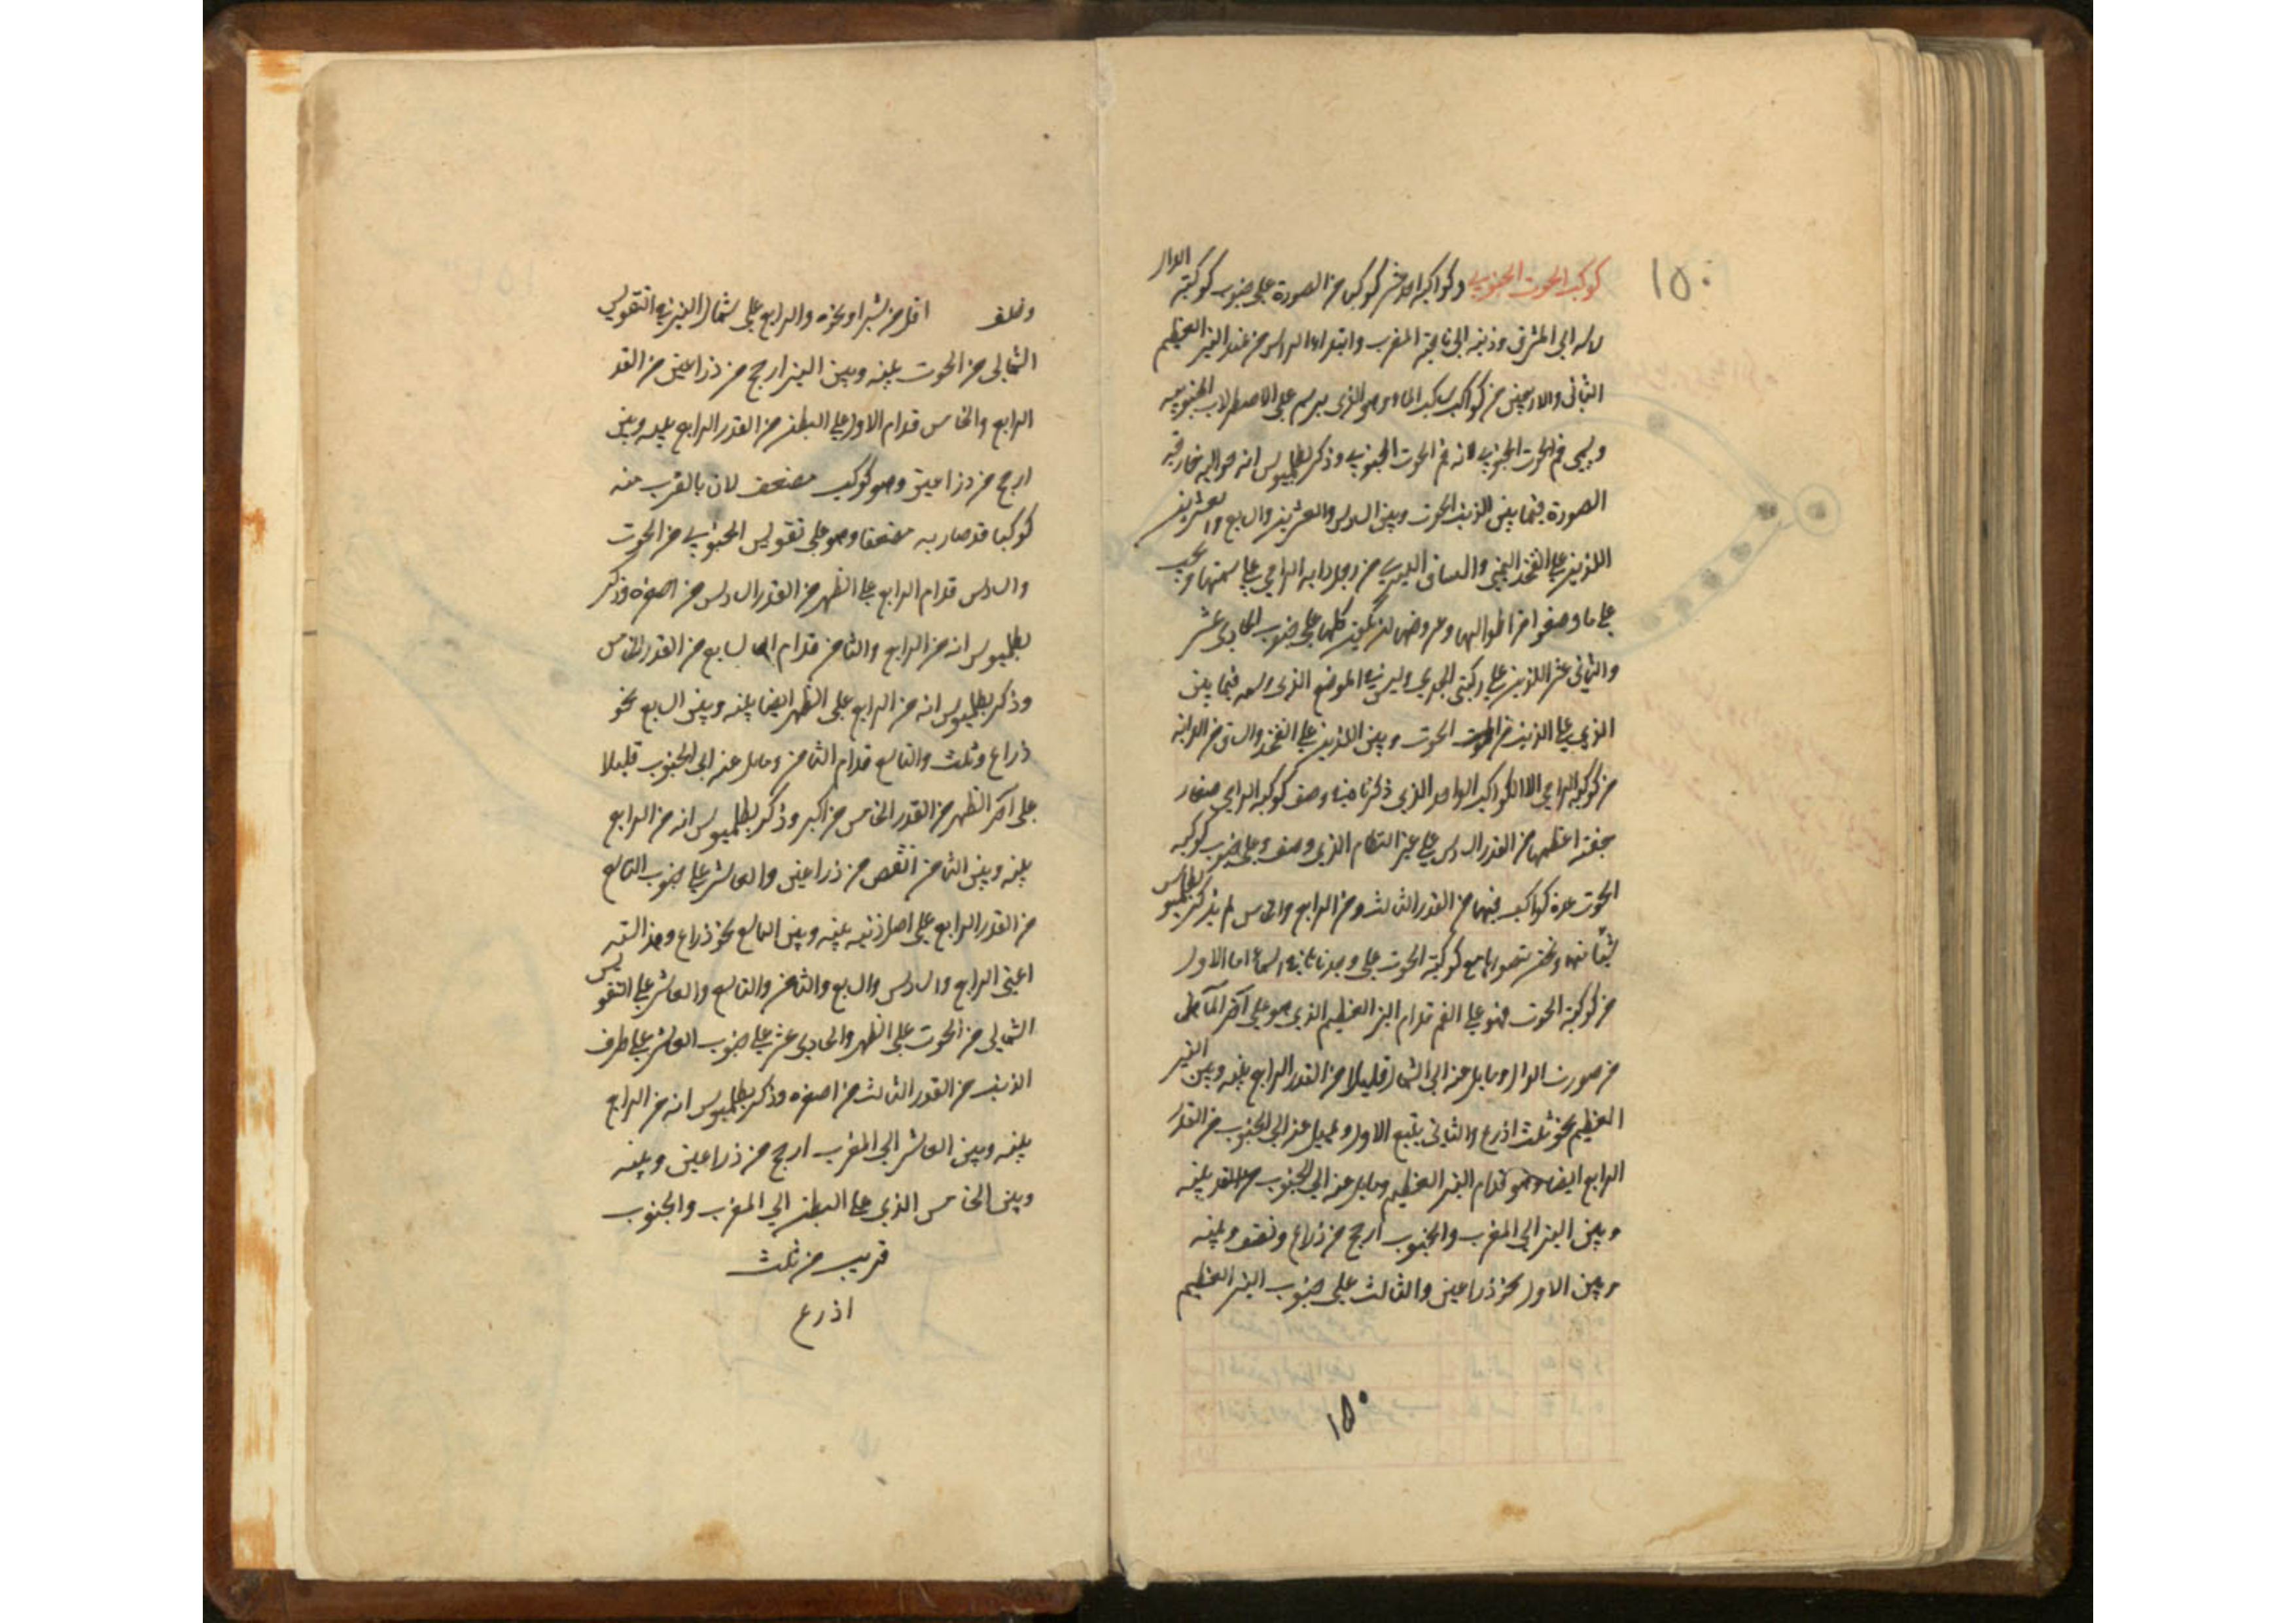 ١٥٠
كوكبة الحوت الجنوبي وكواكبه احد عشر كوكبا من الصورة على جنوب كوكبة الدلو
راسه الى المشرق وذنبه الى ناحية المغرب وابتداء الراس من عند النير العظيم
الثاني والاربعين من كواكب ساكب الماء وهو الذي يرسم على الاصطرلاب الجنوبي
ويسمى فم الحوت الجنوبي لانه فم الحوت الجنوبي وذكر بطلميوس انه حواليه خارجة
الصورة فيما بين الذنب الحوت وبين السادس والعشرين والسابع والعشرين
اللذين على الفخذ اليمنى والساق اليسرى من رجل دابة الرامي على سمتها ويجب
على ما وصفوا من اطوالها وعروضها ان تكون كلها على جنوب الحادي عشر
والثاني عشر اللذين على ركبتي الجدي وليس في الموضع الذي رسمه فيما بين
الذي على الذنب من الحوت وبين اللذين على الفخذ والساق من الدابة
من كوكبة الرامي الا الكواكب الواحد الذي ذكرنا في وصف كوكبة الرامي صغار
خفية اعظمها من القدر السادس على غير النظام الذي وصف وعلى جنوب كوكبة
الحوت عدة كواكب فيها من القدر الثالث ومن الرابع والخامس لم يذكر بطلميوس
شيئا منها ونحن نتصورها مع كوكبة الحوت على وجدناها في السماء اما الاول
من كوكبة الحوت فهو على الفم قدام النير العظيم الذي هو على آخر الماء
من صورت الدلو ومايل عنه الى الشمال قليلا من القدر الرابع بينه وبين النير
العظيم نحو ثلث اذرع والثاني يتبع الاول ويميل عنه الى الجنوب من القدر
الرابع ايضا وهو قدام النير العظيم ومايل عنه الى الجنوب بينه
وبين النير الى المغرب والجنوب ارجح من ذراع ونصف وبينه
وبين الاول نحو ذراعين والثالث على جنوب النير العظيم
١٥٠
وخلف اقل من شبر او نحوه والرابع على شمال النير في التقويس
الشمالي من الحوت بينه وبين النير ارجح من ذراعين من القدر
الرابع والخامس قدام الاول على البطن من القدر الرابع بينه وبين
ارجح من ذراعين وهو كوكب مضعف لان بالقرب منه
كوكبا قد صار به مضعفا وهو على تقويس الجنوبي من الحوت
والسادس قدام الرابع على الظهر من القدر السادس من اصغره وذكر
بطلميوس انه من الرابع والثامن قدام السابع من القدر الخامس
وذكر بطلميوس انه من الرابع على الظهر ايضا بينه وبين السابع نحو
ذراع وثلث والتاسع قدام الثامن ومايل عنه الى الجنوب قليلا
على آخر الظهر من القدر الخامس من اكبر وذكر بطلميوس انه من الرابع
بينه وبين الثامن انقص من ذراعين والعاشر على جنوب التاسع
من القدر الرابع على اصل ذنبه بينه وبين التاسع نحو ذراع وهذا الستة
اعني الرابع والسادس والسابع والثامن والتاسع والعاشر على التقويس
الشمالي من الحوت على الظهر والحادي عشر على جنوب العاشر على طرف
الذنب من القدر الثالث من اصغره وذكر بطلميوس انه من الرابع
بينه وبين العاشر الى المغرب ارجح من ذراعين وبينه
وبين الخامس الذي على البطن الى المغرب والجنوب
قريب من ثلث
اذرع